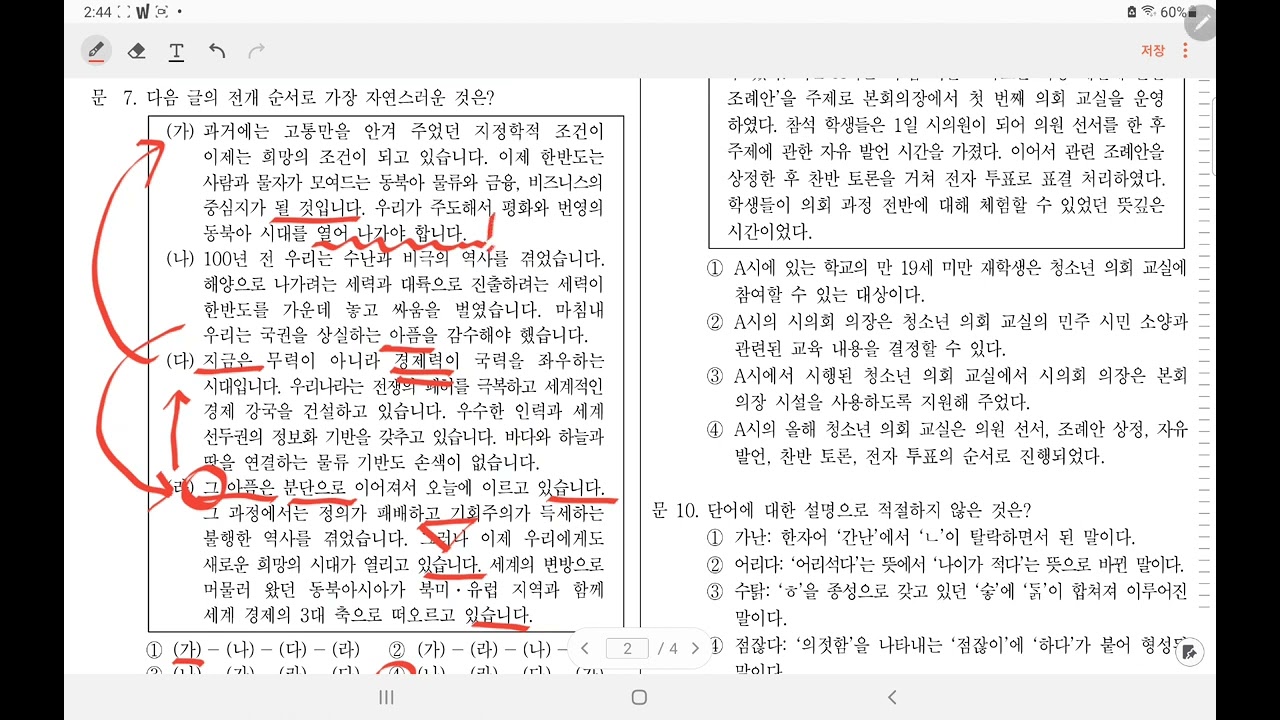 2:44
60%
저장
문 7. 다음 글의 전개 순서로 가장 자연스러운 것은?
(가) 과거에는 고통만을 안겨 주었던 지정학적 조건이
이제는 희망의 조건이 되고 있습니다. 이제 한반도는
사람과 물자가 모여드는 동북아 물류와 금융, 비즈니스의
중심지가 될 것입니다. 우리가 주도해서 평화와 번영의
동북아 시대를 열어 나가야 합니다.
(나) 100년 전 우리는 수난과 비극의 역사를 겪었습니다.
해양으로 나가려는 세력과 대륙으로 진출하려는 세력이
한반도를 가운데 놓고 싸움을 벌였습니다. 마침내
우리는 국권을 상실하는 아픔을 감수해야 했습니다.
(다) 지금은 무력이 아니라 경제력이 국력을 좌우하는
시대입니다. 우리나라는 전쟁의 폐허를 극복하고 세계적인
경제 강국을 건설하고 있습니다. 우수한 인력과 세계
선두권의 정보화 기반을 갖추고 있습니다. 바다와 하늘과
땅을 연결하는 물류 기반도 손색이 없습니다.
(라) 그 아픔은 분단으로 이어져서 오늘에 이르고 있습니다.
그 과정에서는 정의가 패배하고 기회주의가 득세하는
불행한 역사를 겪었습니다. 그러나 이제 우리에게도
새로운 희망의 시대가 열리고 있습니다. 세계의 변방으로
머물러 왔던 동북아시아가 북미·유럽 지역과 함께
세계 경제의 3대 축으로 떠오르고 있습니다.
① (가)-(나)-(다)-(라) ② (가)-(라)-(나)-
조례안'을 주제로 본회의장에서 첫 번째 의회 교실을 운영
하였다. 참석 학생들은 1일 시의원이 되어 의원 선서를 한 후
주제에 관한 자유 발언 시간을 가졌다. 이어서 관련 조례안을
상정한 후 찬반 토론을 거쳐 전자 투표로 표결 처리하였다.
학생들이 의회 과정 전반에 대해 체험할 수 있었던 뜻깊은
시간이었다.
① A시에 있는 학교의 만 19세 미만 재학생은 청소년 의회 교실에
참여할 수 있는 대상이다.
② A시의 시의회 의장은 청소년 의회 교실의 민주 시민 소양과
관련된 교육 내용을 결정할 수 있다.
③ A시에서 시행된 청소년 의회 교실에서 시의회 의장은 본회
의장 시설을 사용하도록 지원해 주었다.
④ A시의 올해 청소년 의회 교실은 의원 선서, 조례안 상정, 자유
발언, 찬반 토론, 전자 투표의 순서로 진행되었다.
문 10. 단어에 대한 설명으로 적절하지 않은 것은?
① 가난: 한자어 '간난'에서 'ㄴ'이 탈락하면서 된 말이다.
② 어리다: '어리석다'는 뜻에서 '나이가 적다'는 뜻으로 바뀐 말이다.
③ 수탉: 'ㅎ'을 종성으로 갖고 있던 '숳'에 '둙'이 합쳐져 이루어진
말이다.
④ 점잖다: '의젓함'을 나타내는 '점잖이'에 '하다'가 붙어 형성된
말이다.
2 / 4